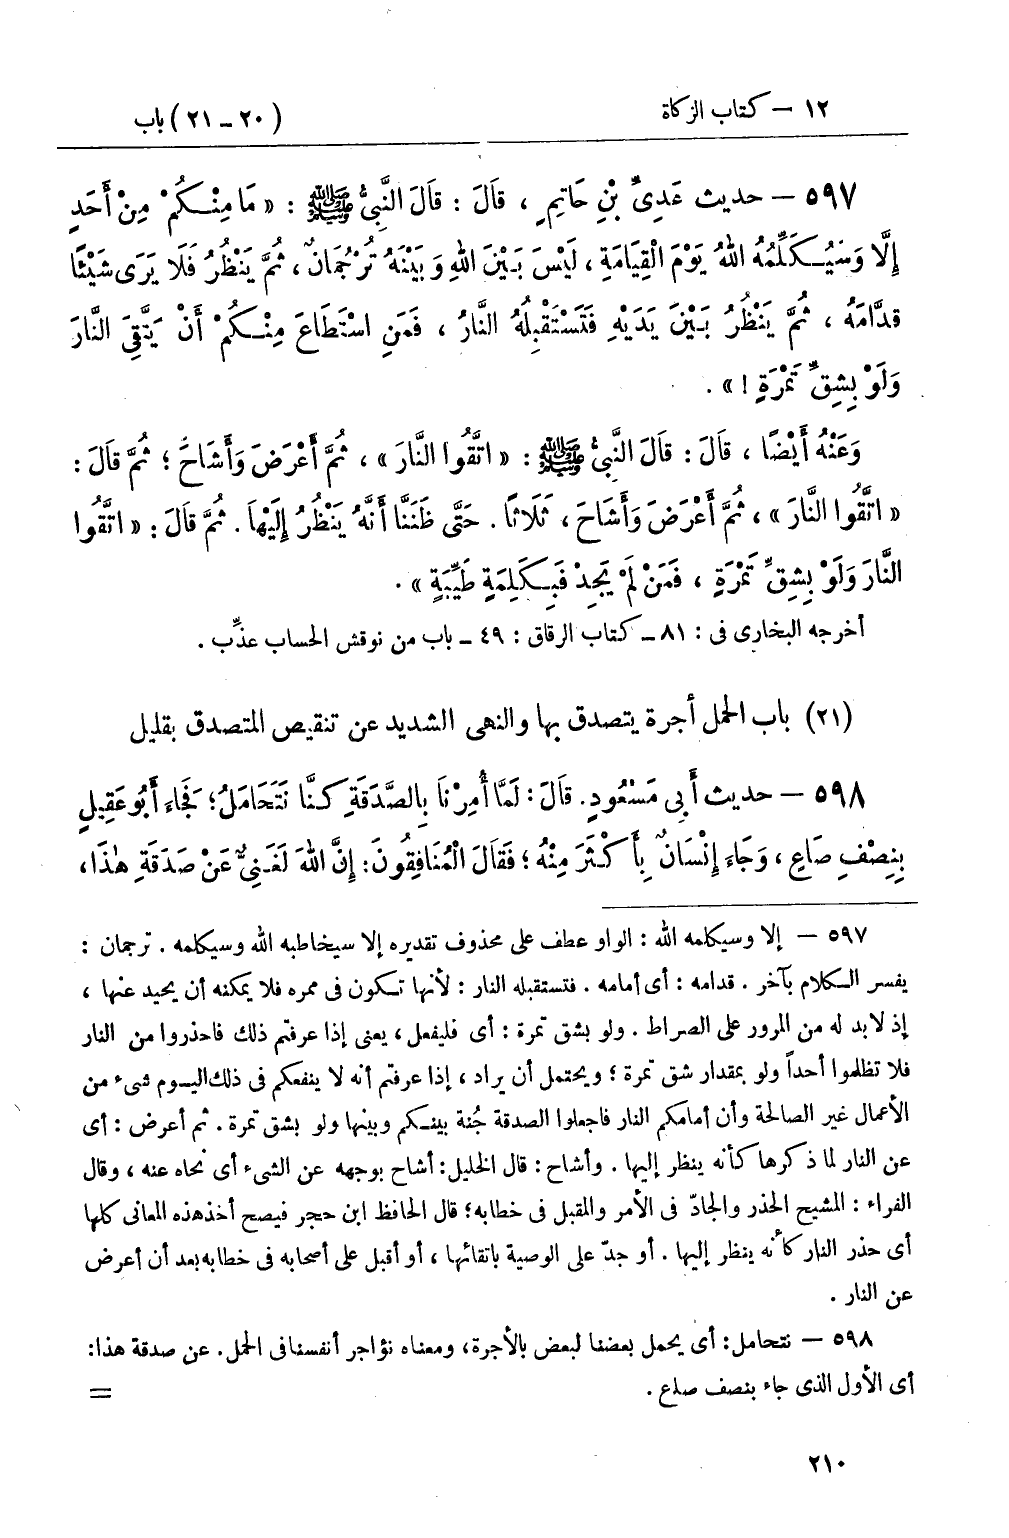 ١٢ – كتاب الزكاة
(٢٠ – ٢١) باب
٥٩٧ – حديث عَدِىِّ بْنِ حَاتِمٍ ، قَالَ : قَالَ النَّبِىُّ ﷺ : « مَا مِنْكُمْ مِنْ أَحَدٍ
إِلَّا وَسَيُكَلِّمُهُ اللهُ يَوْمَ الْقِيَامَةِ ، لَيْسَ بَيْنَ اللهِ وَبَيْنَهُ تُرْجُمَانٌ ، ثُمَّ يَنْظُرُ فَلَا يَرَى شَيْئًا
قدَّامَهُ ، ثُمَّ يَنْظُرُ بَيْنَ يَدَيْهِ فَتَسْتَقْبِلُهُ النَّارُ ، فَمَنِ اسْتَطَاعَ مِنْكُمْ أَنْ يَتَّقِىَ النَّارَ
وَلَوْ بِشِقِّ تَمْرَةٍ ! » .
وَعَنْهُ أَيْضًا ، قَالَ : قَالَ النَّبِىُّ ﷺ : « اتَّقُوا النَّارَ » ، ثُمَّ أَعْرَضَ وَأَشَاحَ ؛ ثُمَّ قَالَ :
« اتَّقُوا النَّارَ » ، ثُمَّ أَعْرَضَ وَأَشَاحَ ، ثَلَاثًا . حَتَّى ظَنَنَّا أَنَّهُ يَنْظُرُ إِلَيْهاَ . ثُمَّ قَالَ : « اتَّقُوا
النَّارَ وَلَوْ بِشِقِّ تَمْرَةٍ ، فَمَنْ لَمْ يَجِدْ فَبِكَلِمَةٍ طَيِّبَةٍ » .
أخرجه البخارى فى : ٨١ – كتاب الرقاق : ٤٩ – باب من نوقش الحساب عذِّب .
(٢١) باب الحمل أجرة يتصدق بها والنهى الشديد عن تنقيص المتصدق بقليل
٥٩٨ – حديث أَبِى مَسْعُودٍ . قَالَ : لَمَّا أُمِرْنَا بِالصَّدَقَةِ كُنَّا نَتَحَامَلُ ؛ فَجَاءَ أَبُو عَقِيلٍ
بِنِصْفِ صَاعٍ ، وَجَاءَ إِنْسَانٌ بِأَكْثَرَ مِنْهُ ؛ فَقَالَ الْمُنَافِقُونَ : إِنَّ اللهَ لَغَنِىٌّ عَنْ صَدَقَةِ هٰذَا ،
٥٩٧ – إلا وسيكلمه الله : الواو عطف على محذوف تقديره إلا سيخاطبه الله وسيكلمه . ترجمان :
يفسر الكلام بآخر . قدامه : أى أمامه . فتستقبله النار : لأنها تكون فى ممره فلا يمكنه أن يحيد عنها ،
إذ لابد له من المرور على الصراط . ولو بشق تمرة : أى فليفعل ، يعنى إذا عرفتم ذلك فاحذروا من النار
فلا تظلموا أحداً ولو بمقدار شق تمرة ؛ ويحتمل أن يراد ، إذا عرفتم أنه لا ينفعكم فى ذلك اليوم شىء من
الأعمال غير الصالحة وأن أمامكم النار فاجعلوا الصدقة جُنة بينكم وبينها ولو بشق تمرة . ثم أعرض : أى
عن النار لما ذكرها كأنه ينظر إليها . وأشاح : قال الخليل : أشاح بوجهه عن الشىء أى نحاه عنه ، وقال
الفراء : المشيح الحذر والجادّ فى الأمر والمقبل فى خطابه ؛ قال الحافظ ابن حجر فيصح أخذ هذه المعانى كلها
أى حذر النار كأنه ينظر إليها . أو جدّ على الوصية باتقائها ، أو أقبل على أصحابه فى خطابه بعد أن أعرض
عن النار .
٥٩٨ – نتحامل : أى يحمل بعضنا لبعض بالأجرة ، ومعناه نؤاجر أنفسنا فى الحمل . عن صدقة هذا :
أى الأول الذى جاء بنصف صاع . =
٢١٠